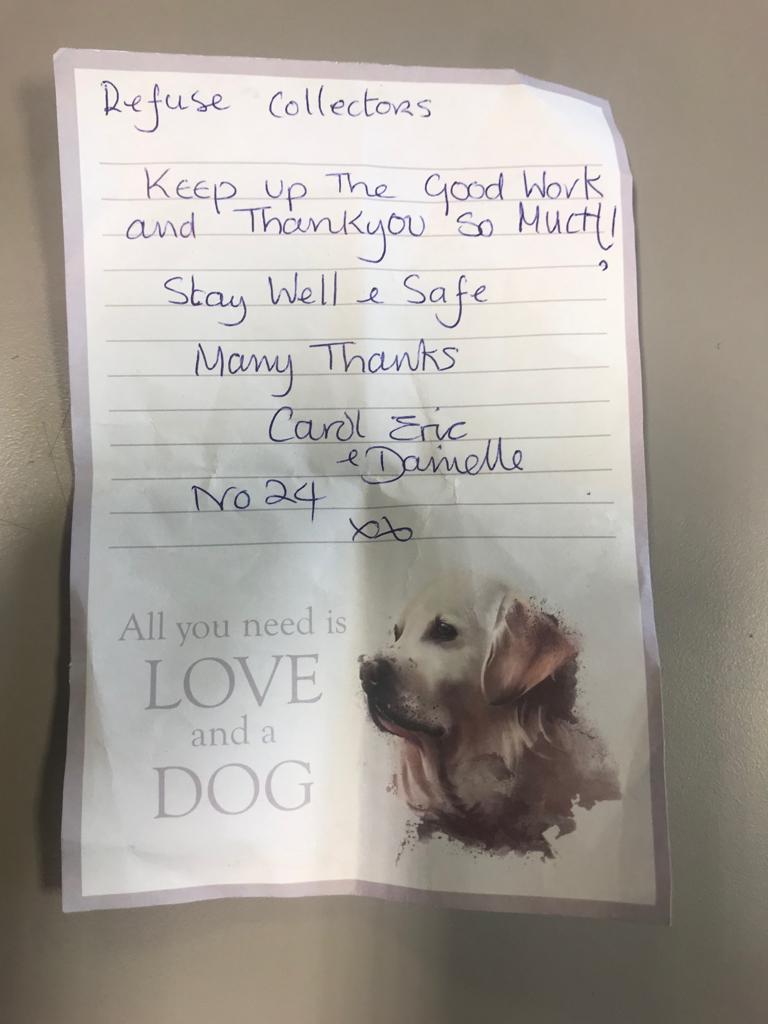 Refuse Collectors
Keep up The Good Work
and Thankyou So Much!!
Stay Well e Safe
Many Thanks
Carol Eric
e Danielle
No 24
xx
All you need is
LOVE
and a
DOG